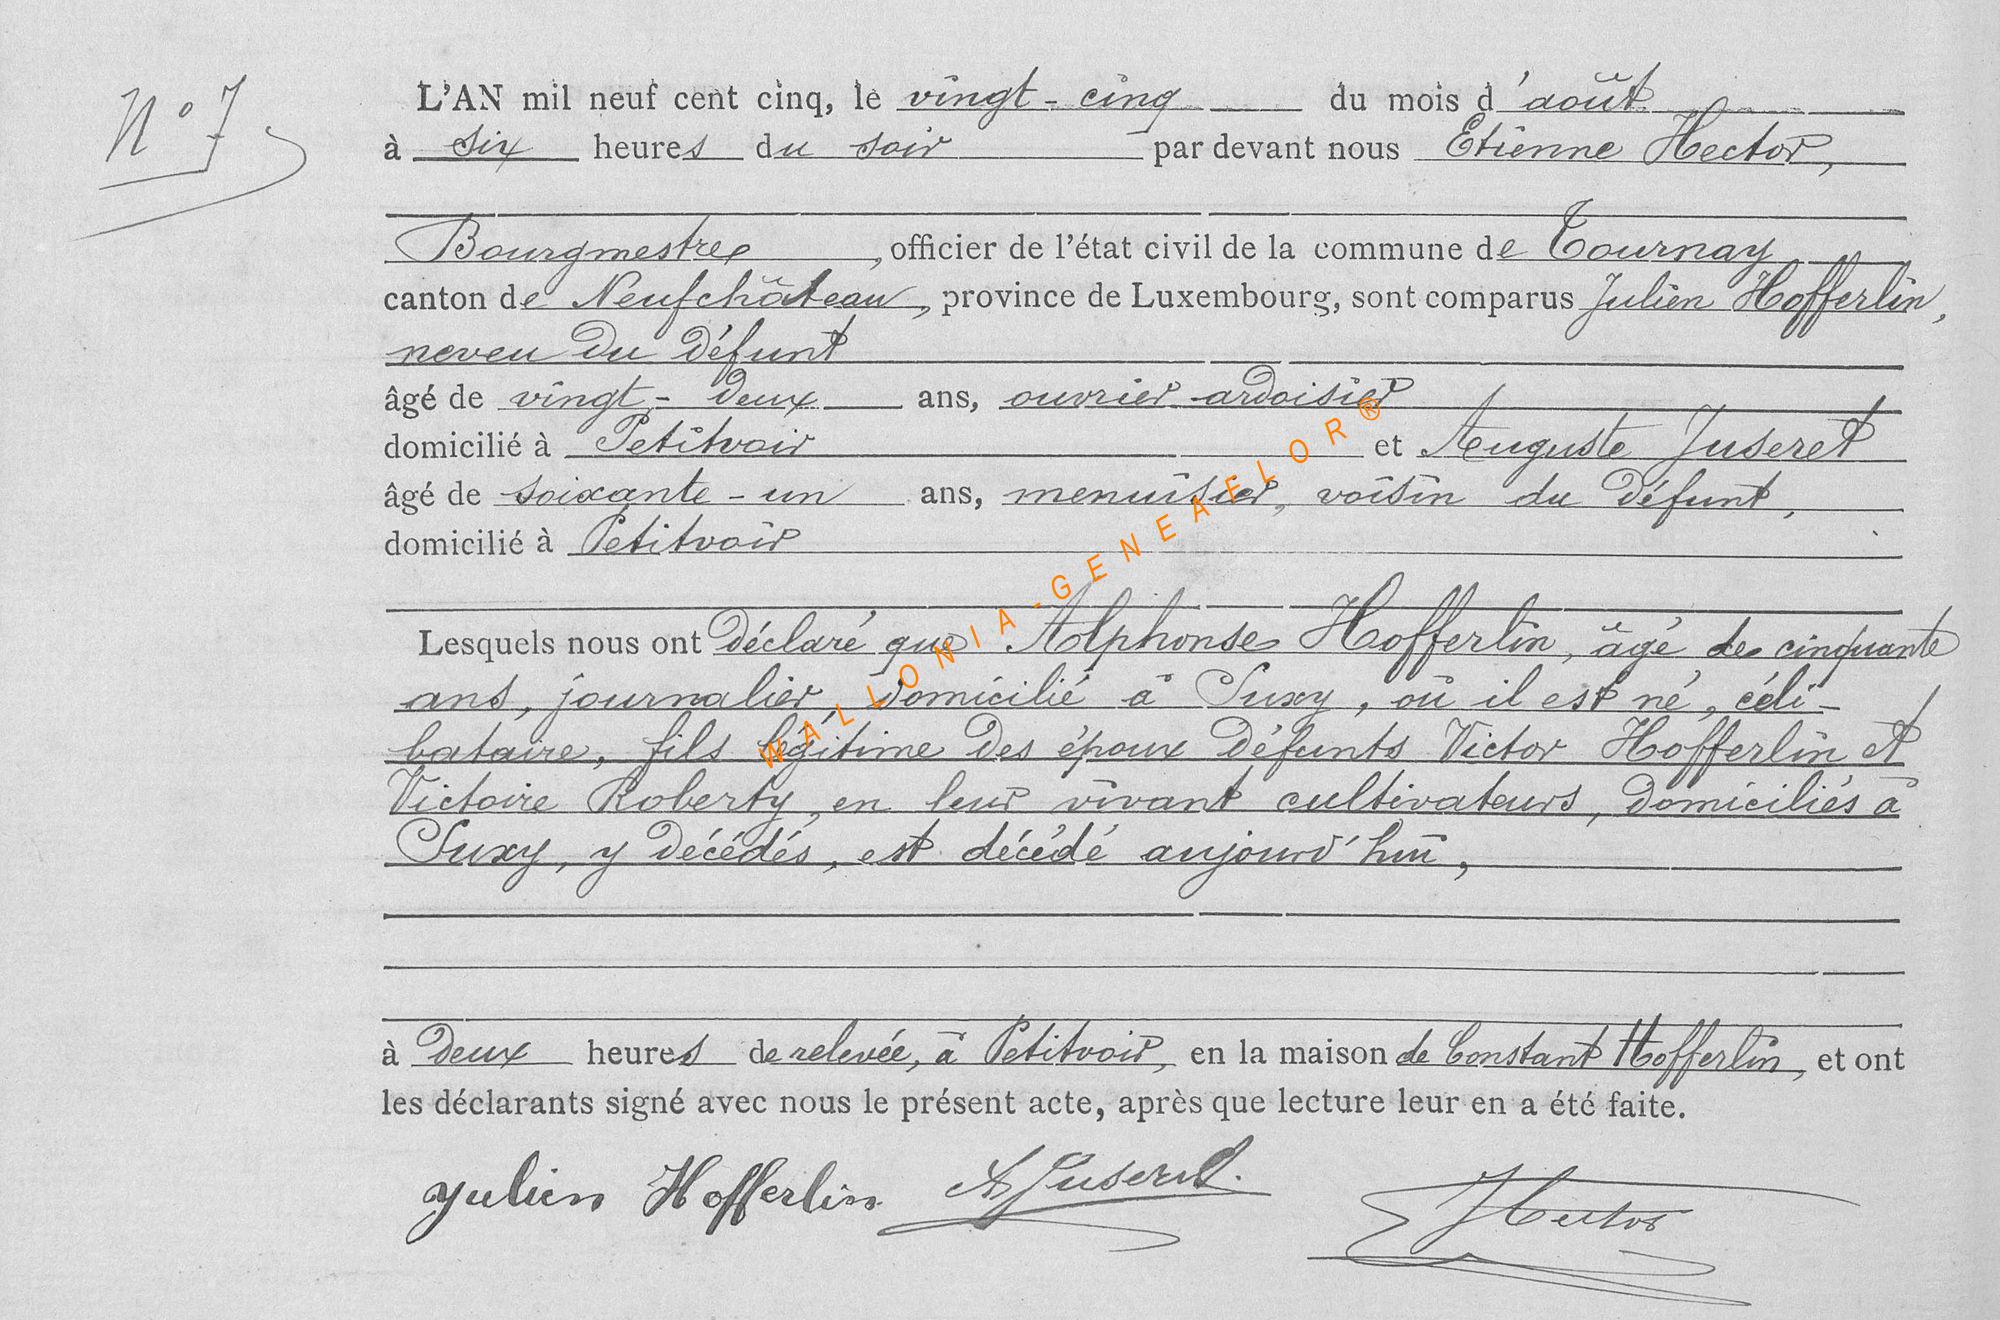 N° 7
L'AN mil neuf cent cinq, le vingt-cinq du mois d'août
à six heures du soir par devant nous Etienne Hector,
Bourgmestre, officier de l'état civil de la commune de Tournay
canton de Neufchâteau, province de Luxembourg, sont comparus Julien Hofferlin,
neveu du défunt
âgé de vingt-deux ans, ouvrier ardoisier
domicilié à Petitvoir et Auguste Juseret
âgé de soixante-un ans, menuisier, voisin du défunt,
domicilié à Petitvoir
Lesquels nous ont déclaré que Alphonse Hofferlin, âgé de cinquante
ans, journalier, domicilié à Suxy, où il est né, céli-
bataire, fils légitime des époux défunts Victor Hofferlin et
Victoire Roberty, en leur vivant cultivateurs, domiciliés à
Suxy, y décédés, est décédé aujourd'hui,
à deux heures de relevée, à Petitvoir, en la maison de Constant Hofferlin, et ont
les déclarants signé avec nous le présent acte, après que lecture leur en a été faite.
Julien Hofferlin A Juseret. Hector
WALLONIA-GENEAFLOR®